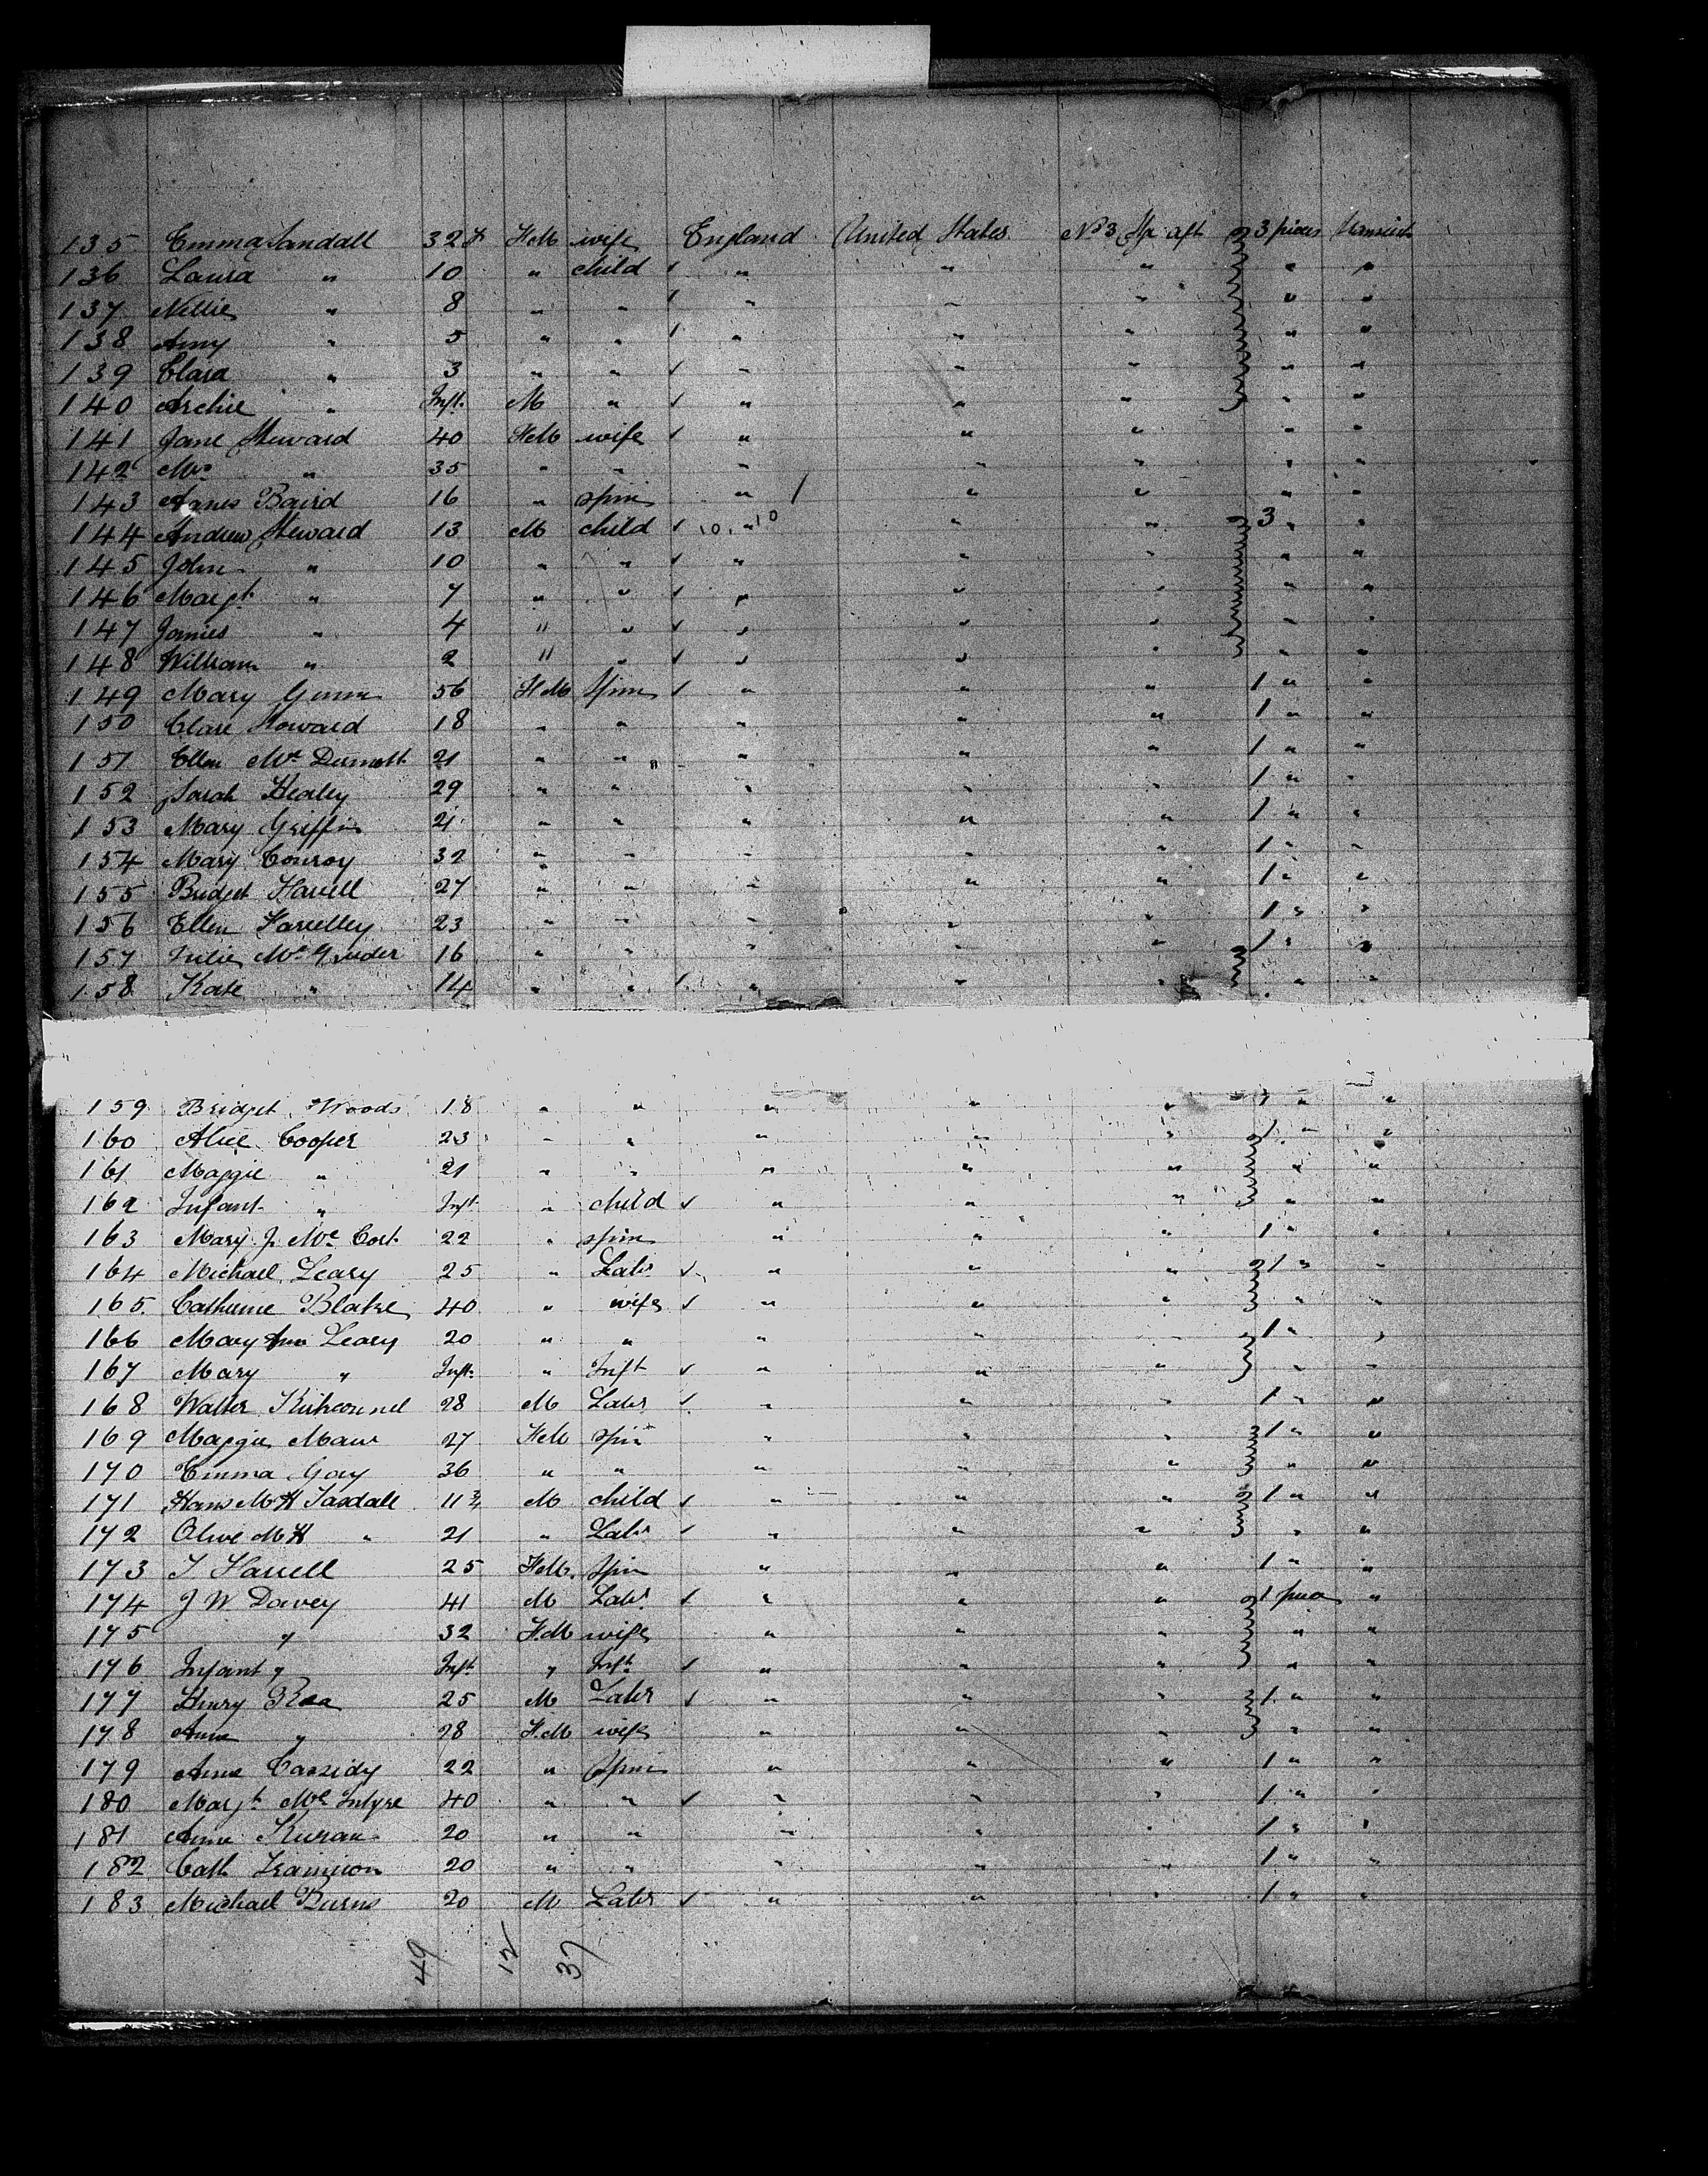 135 Emma Sandall 32 FeM wife England United States No 3 Sp aft 3 pieces
136 Laura " 10 " child ✓ " " " " "
137 Nellie " 8 " " ✓ " " " " "
138 Amy " 5 " " ✓ " " " " "
139 Clara " 3 " " ✓ " " " " "
140 Archie " Inft. M " ✓ " " " " "
141 Jane Steward 40 FeM wife ✓ " " " " "
142 Mrs " 35 " " " " " " "
143 Agnes Baird 16 " spin " " " " "
144 Andrew Steward 13 M child ✓ 10. " 10 " " 3 " "
145 John " 10 " " ✓ " " " " "
146 Margt " 7 " " ✓ " " " " "
147 James " 4 " " ✓ " " " " "
148 William " 2 " " ✓ " " " " "
149 Mary Gunn 56 FeM Spin ✓ " " " 1 " "
150 Clare Howard 18 " " " " " 1 " "
151 Ellen Mc Dermott 21 " " " " " 1 " "
152 Sarah Healey 29 " " " " " 1 " "
153 Mary Griffin 21 " " " " " 1 " "
154 Mary Conroy 32 " " " " " 1 " "
155 Bridget 27 " " " " " 1 " "
156 Ellen 23 " " " " " 1 " "
157 Mc 16 " " " " " 1 " "
158 Kate " 14 " " ✓ " " " " "
159 Bridget Woods 18 " " " " " 1 " "
160 Alice Cooper 23 " " " " " 1 " "
161 Maggie " 21 " " " " " " "
162 Infant " Inft " child ✓ " " " " "
163 Mary J. Mc Cort 22 " spin " " " 1 " "
164 Michael Leary 25 " Labr ✓ " " " 1 " "
165 Catherine Blake 40 " wife ✓ " " " " "
166 Mary Ann Leary 20 " " " " " 1 " "
167 Mary " Inft. " Inft ✓ " " " " "
168 Walter 28 M Labr ✓ " " " 1 " "
169 Maggie Maw 27 FeM spin " " " 1 " "
170 Emma Gay 36 " " " " " " "
171 Hans M H Tasdall 11 M child ✓ " " " 1 " "
172 Olive M H " 21 " Labr ✓ " " " " "
173 25 FeM. Spin " " " 1 " "
174 J W Davey 41 M Labr ✓ " " " 1 "
175 " 32 FeM wife " " " " "
176 Infant " Inft " Inft ✓ " " " " "
177 Henry Rea 25 M Labr ✓ " " " 1 " "
178 Anne " 28 FeM wife " " " " "
179 Anne Cassidy 22 " Spin " " " 1 " "
180 Margt Mc Intyre 40 " " ✓ " " " 1 " "
181 Anne 20 " " " " " 1 " "
182 Cath 20 " " " " " 1 " "
183 Michael Burns 20 M Labr ✓ " " " 1 " "
49 12 37